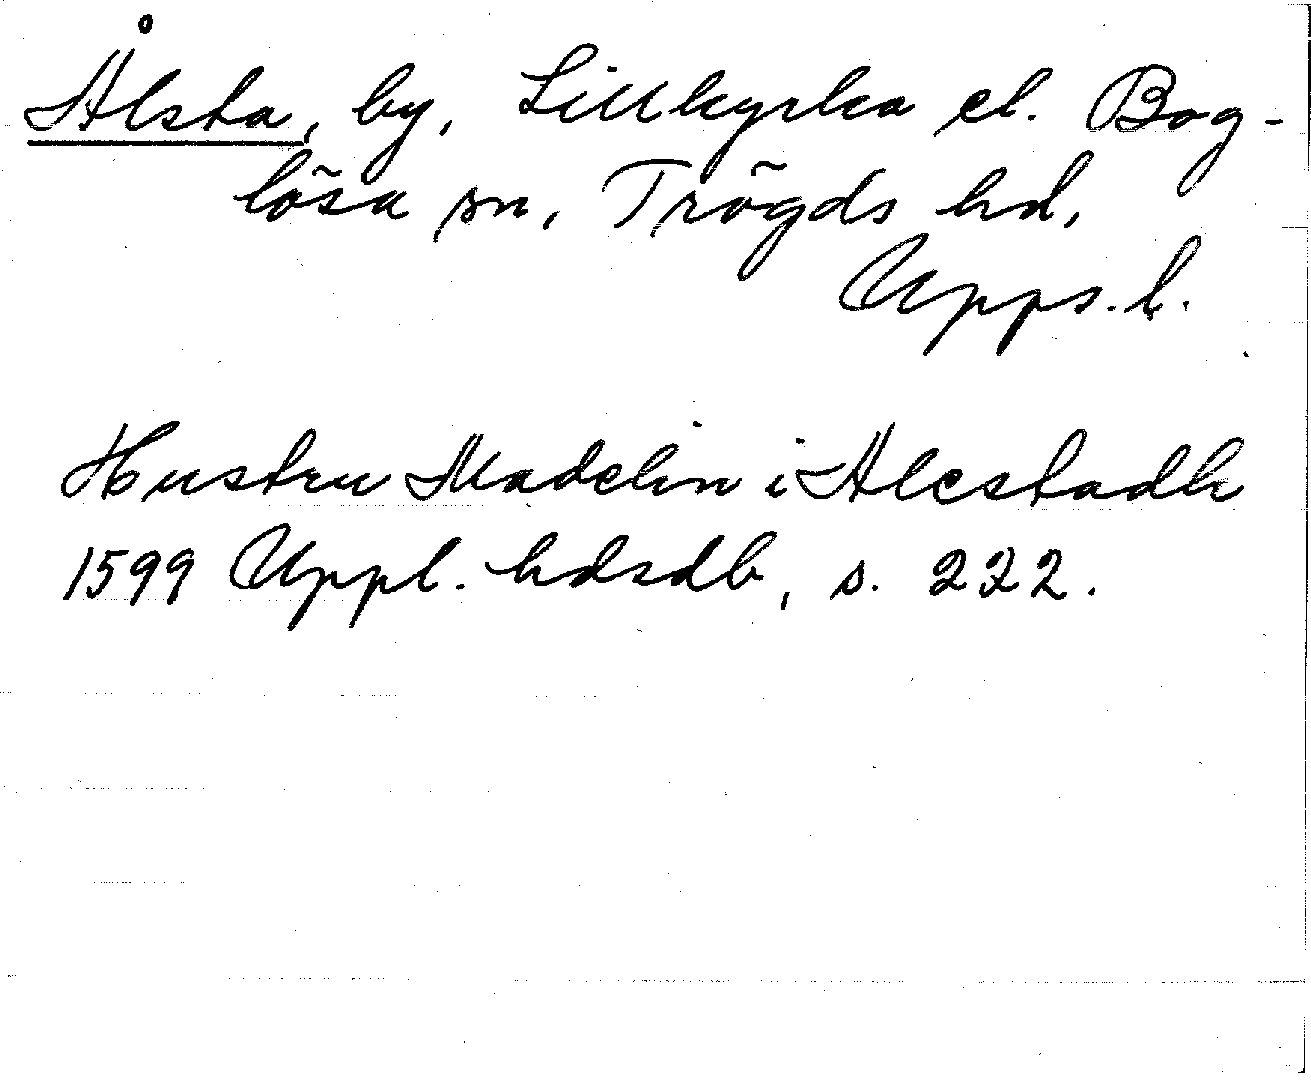 Ålsta, by, Lillkyrka el. Bog-
lösa sn, Trögds hd,
Upps. l.
Hustru Madelin i Alestadh
1599 Uppl. hdsdb, s. 222.